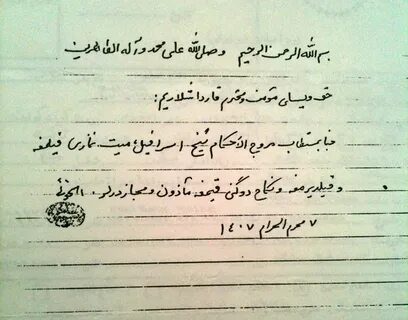 بسم الله الرحمن الرحیم وصل الله علی محمد وآله الطاهرین
مؤمن و محترم قارداشلاریم:
جناب مستطاب مروج الاحکام شیخ اسرافیل، میت نمازی قیلمقه
و قیلدیرمقه و نکاح دوگنی قیمقه مأذون و مجازدرلر.
۷ محرم الحرام ۱۴۰۷